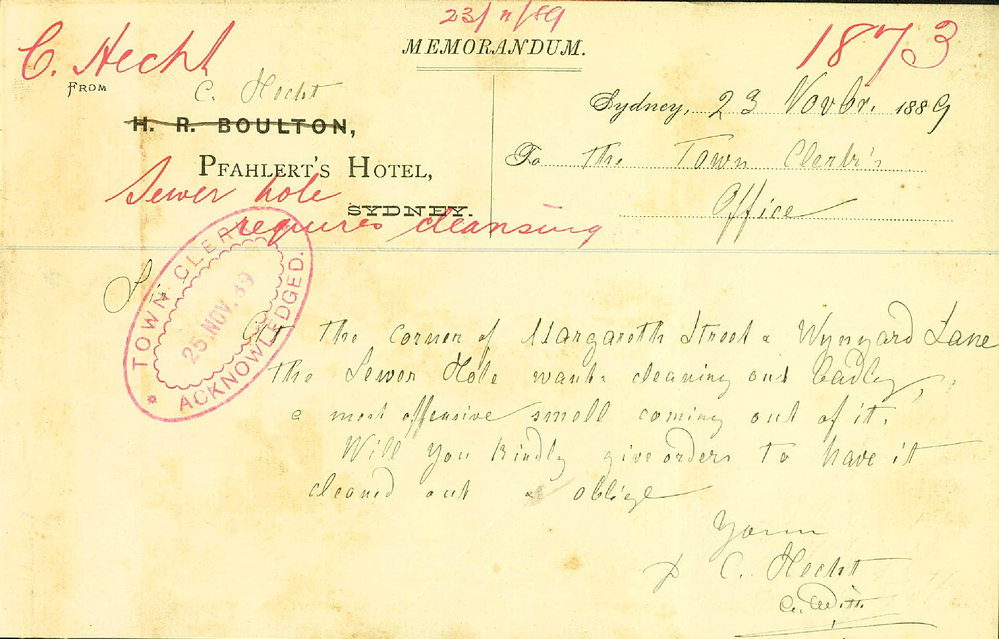 23/11/89
C. Hecht
MEMORANDUM.
1873
FROM
C. Hecht
H. R. BOULTON,
PFAHLERT'S HOTEL,
SYDNEY.
Sewer hole
requires cleansing
Sydney, 23 Novbr. 1889
To the Town Clerk's
Office
TOWN CLERK
25.NOV.89
ACKNOWLEDGED.
At the corner of Margareth Street & Wynyard Lane
the Sewer Hole wants cleaning out badly,
a most offensive smell coming out of it.
Will you kindly give orders to have it
cleaned out & oblige
Yours
p C. Hecht